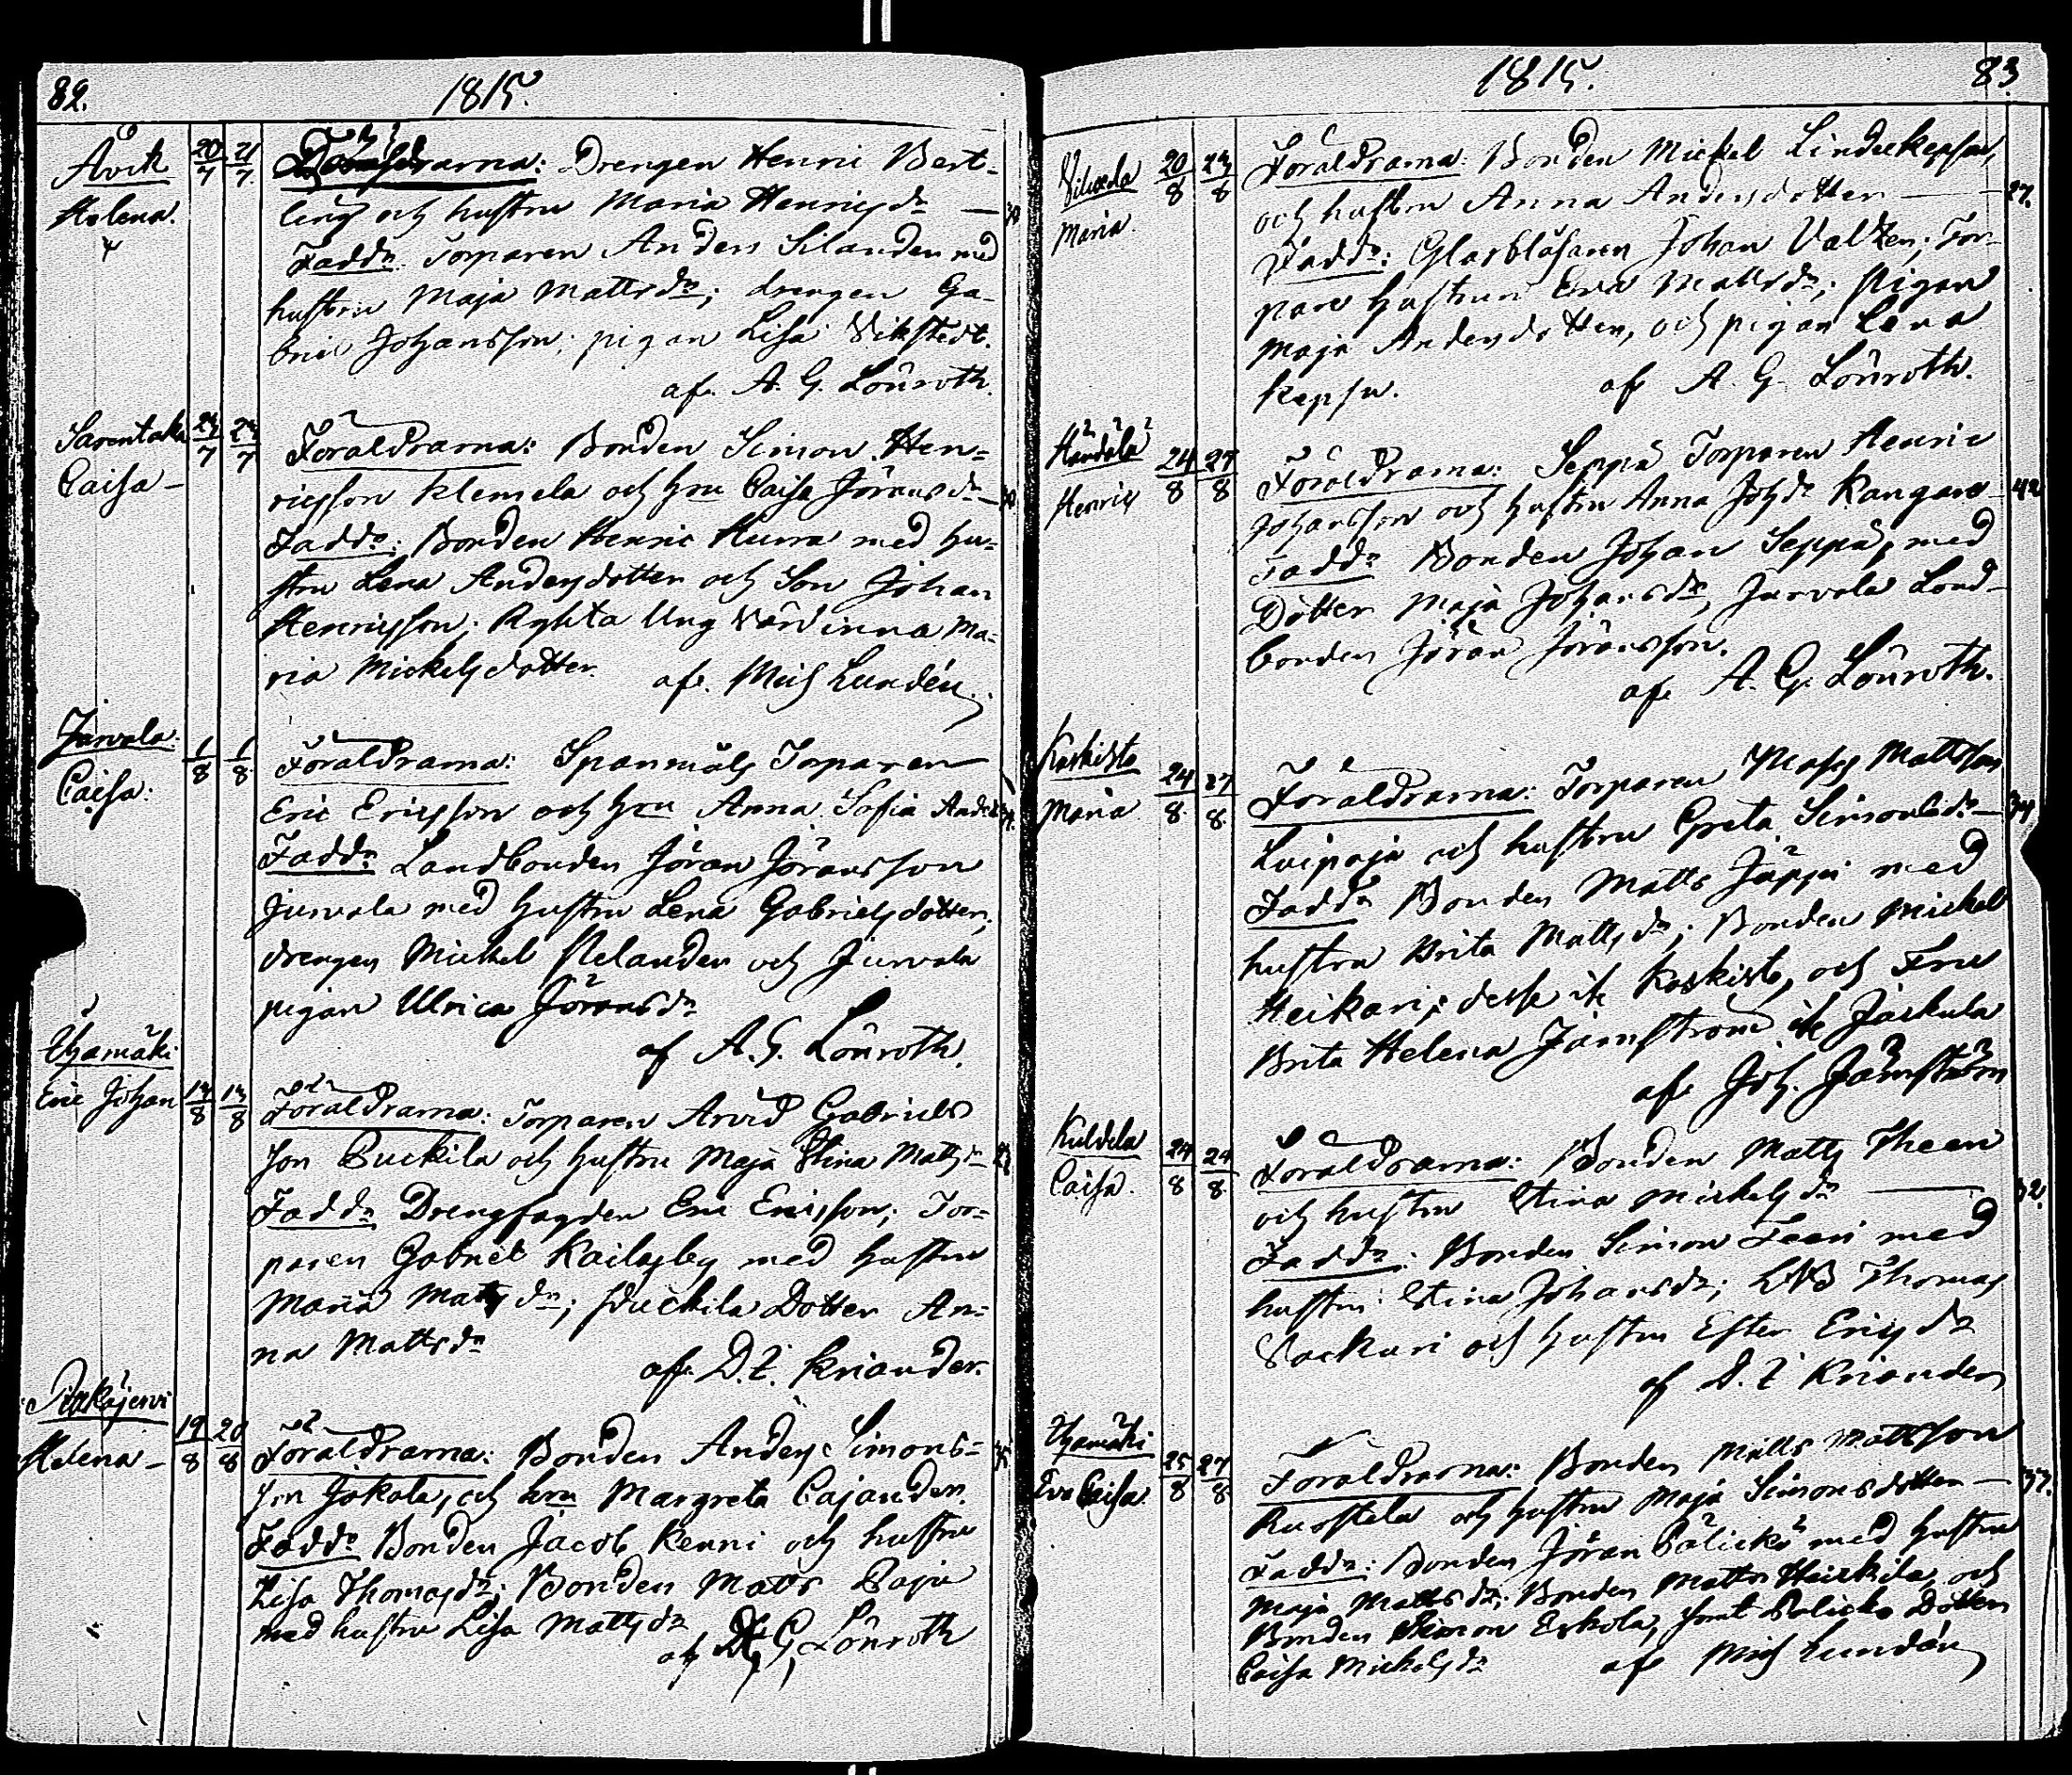 82. 1815.
Åvik 20/7 21/7 Föräldrarna: Drengen Henric Bert-
Helena. ling och hustru Maria Henricsdr —
Faddr Torparen Anders Silander med
hustru Maja Mattsdr; drengen Ga-
briel Johansson; pigan Lisa Vikstedt.
af. A. G. Lönroth.
Sarentaka 23/7 23/7 Föräldrarna: Bonden Simon Hen-
Caisa — ricsson Klemela och hru Caisa Jöransdr —
Faddr: Bonden Henric Hurra med hu-
stru Lena Andersdotter och Son Johan
Henricsson; Ryhta Ung Värdinna Ma-
ria Mickelsdotter. af. Mich Lundén.
Jurvala 1/8 1/8 Föräldrarna: Spanmåls Torparen
Caisa. Eric Ericsson och hru Anna Sofia Andersdr
Faddr Landbonden Jöran Jöransson
Jurvala med hustru Lena Gabrielsdotter,
drengen Mickel Melander och Jurvala
pigan Ulrica Jöransdr
af A. G. Lönroth.
Yhamäki
Eric Johan 12/8 13/8 Föräldrarna: Torparen Arvid Gabriels
son Puckila och hustru Maja Stina Mattsdr
Faddr Drengfogden Eric Ericsson; Tor-
paren Gabriel Kailasby med hustru
Maria Mattsdr; Puckila Dotter An-
na Mattsdr
af. D. E. Kriander.
Pitkäjervi
Helena — 19/8 20/8 Föräldrarna: Bonden Anders Simons-
son Jokala, och hru Margreta Cajander.
Faddr Bonden Jacob Kenni och hustru
Lisa Thomasdr; Bonden Matts Paju
med hustru Lisa Mattsdr
af A. G. Lönroth
1815. 83.
Vilvola 20/8 23/8 Föräldrarna: Bonden Mickel Lindeckepsu,
Maria. och hustru Anna Andersdotter — 27.
Faddr: Glasblåsaren Johan Valten; Tor-
pare hustrun Eva Mattsdr; Pigan
Maja Andersdotter, och pigan Lena
Kepsu. af A. G. Lönroth.
Händälä 24/8 27/8 Föräldrarna: Seppä Torparen Henric
Henric Johansson och hustru Anna Johdr Kangare — 42
Faddr Bonden Johan Seppä, med
Dotter Maja Johansdr, Jurvala Land-
bonden Jöran Jöransson.
af A. G. Lönroth.
Koskisto
Maria 24/8 27/8 Föräldrarna: Torparen Moses Mattsson
Luipaja och hustru Greta Simonsdr — 34
Faddr Bonden Matts Jäppi med
hustru Brita Mattsdr; Bonden Mickel
Heikari; desse ifr Koskisto, och Fru
Brita Helena Jarnström ifr Jaskula
af Joh. Jarnström
Kuldela 24/8 24/8 Föräldrarna: Bonden Matts Theen
Caisa. och hustru Stina Mickelsdr — 32.
Faddr: Bonden Simon Teen med
hustru Stina Johansdr; LNB Thomas
Sackuri och hustru Ester Ericsdr
af D. E Kriander
Yhamäki
Eva Caisa. 25/8 27/8 Föräldrarna: Bonden Matts Mattsson
Ruostela och hustru Maja Simonsdotter — 37.
Faddr: Bonden Jöran Pälickö med hustru
Maja Mattsdr; Bonden Matts Heickila, och
Bonden Simon Eskola, samt Palicko Dotter
Caisa Mickelsdr af Mich Lundén